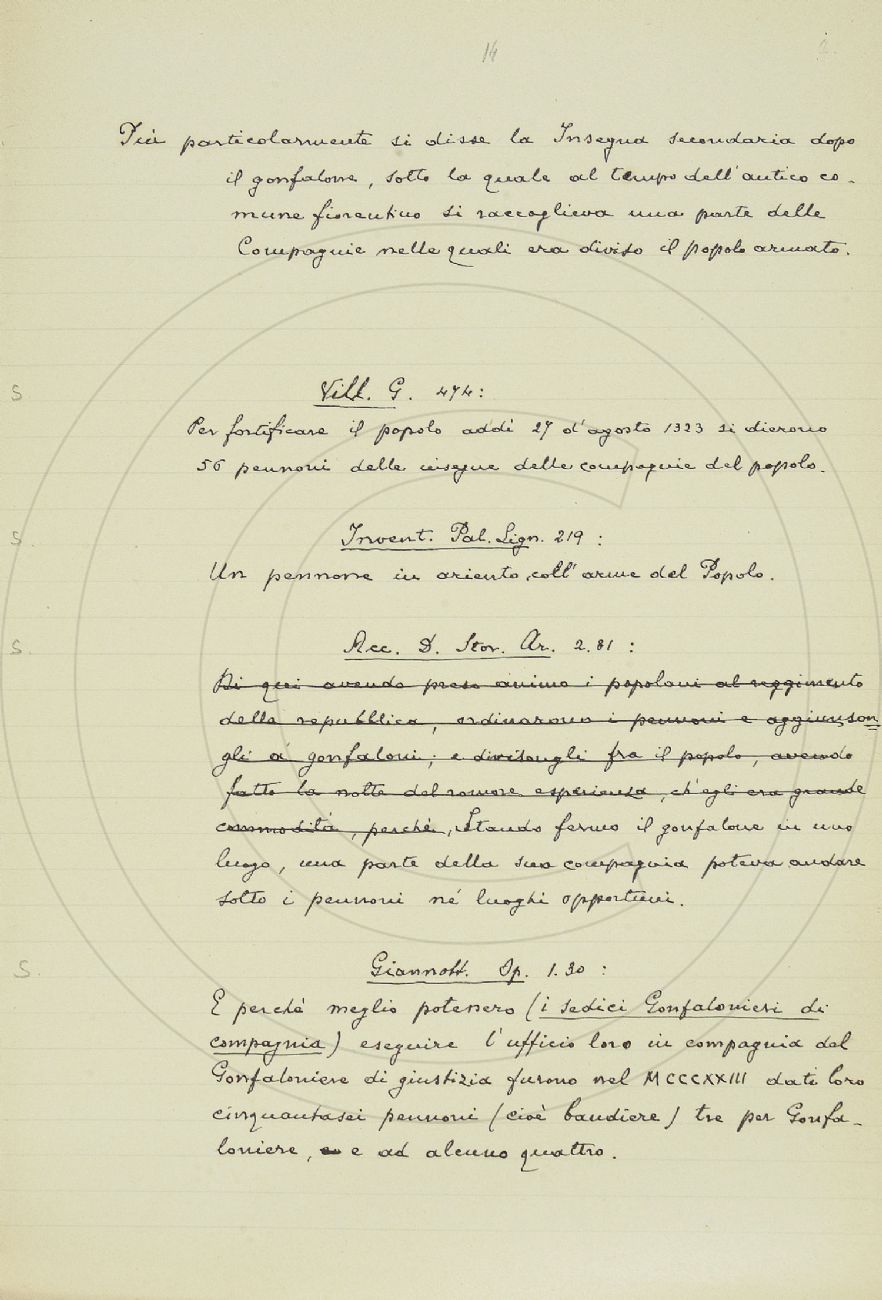 14
Più particolarmente si disse la Insegna secondaria dopo
il gonfalone, sotto la quale al tempo dell'antico co-
mune fiorentino si raccoglieva una parte delle
Compagnie nelle quali era diviso il popolo armato.
S
Vill. G. 474:
Per fortificare il popolo addì 27 d'agosto 1323 si dierono
56 pennoni delle insegne delle compagnie del popolo.
S.
Invent. Pal. Sign. 219:
Un pennone in ariento coll'arme del Popolo.
S.
Acc. D. Stor. Ar. 2.81:
Di qui avendo preso animo i popolani al reggimento
della repubblica, ordinarono i pennoni e aggiunson
gli a' gonfaloni; e divisongli fra il popolo, avendo
fatto la notte del romore esperienza, ch'egli era grande
commodità, perchè, Stando fermo il gonfalone in uno
luogo, una parte della sua compagnia poteva andare
sotto i pennoni né luoghi opportuni.
S.
Giannott. Op. 1.30:
E perchè meglio potessero (i sedici Gonfalonieri di
compagnia) eseguire l'ufficio loro in compagnia del
Gonfaloniere di giustizia furono nel MCCCXXIII dati loro
cinquantasei pennoni (cioè bandiere) tre per Gonfa-
loniere, e e ad alcuno quattro.